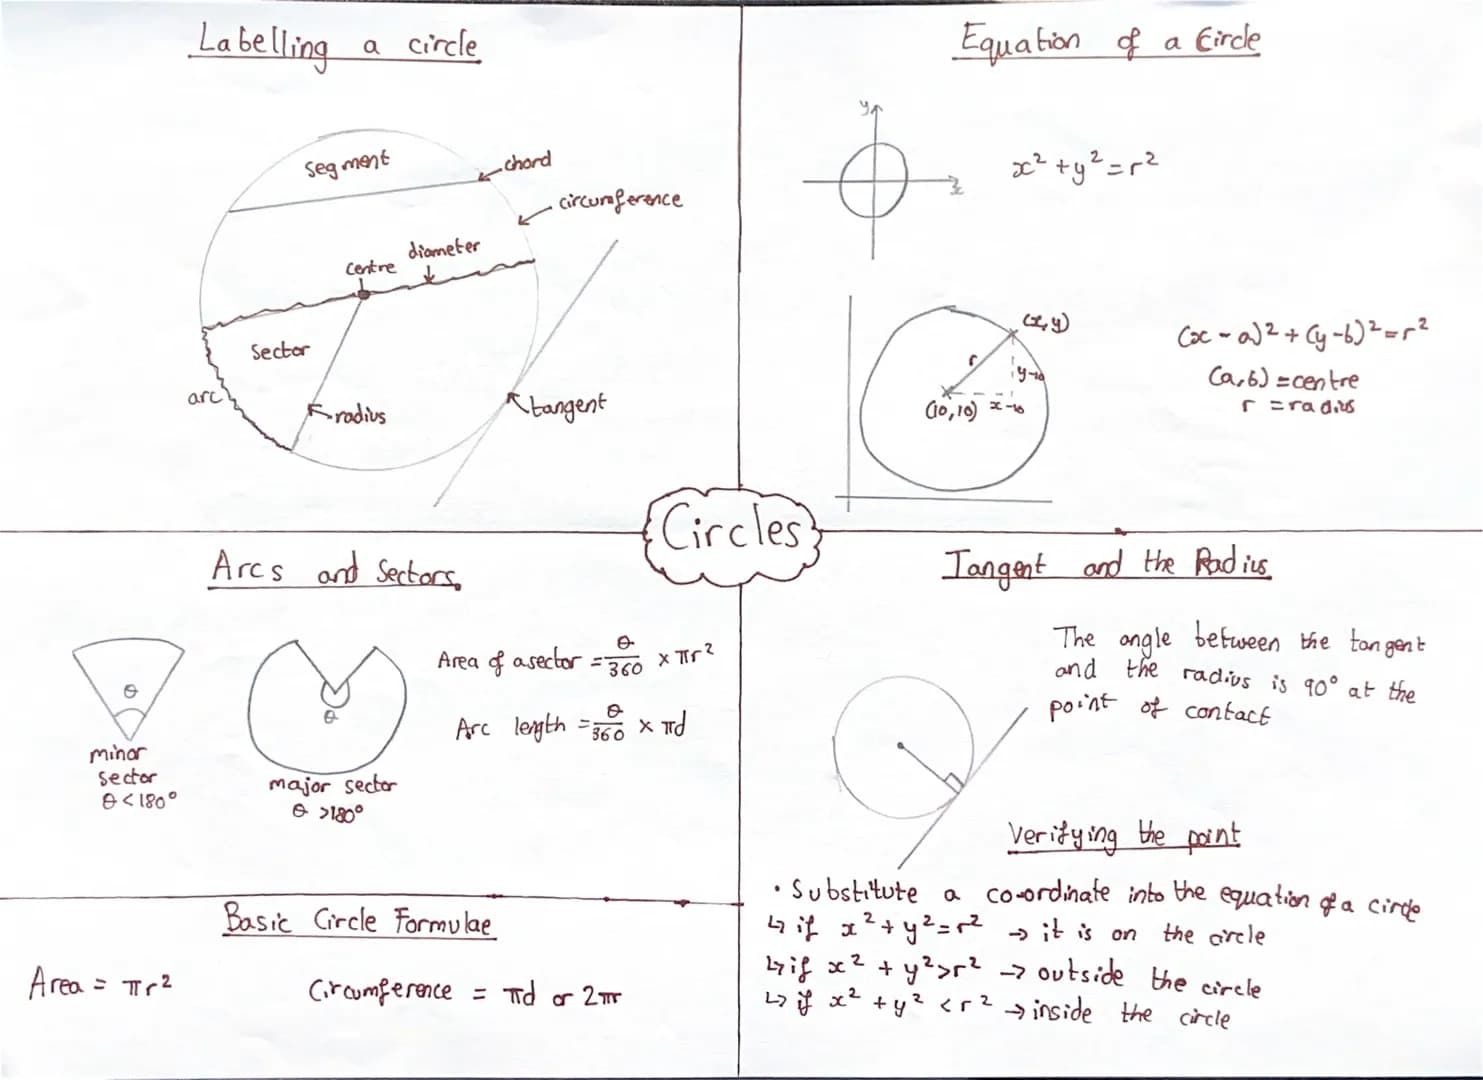 Labelling a circle
segment
chord
circumference
diameter
centre
Sector
arc
radius
tangent
Equation of a Circle
y
x
x² + y² = r²
(x, y)
r
y-10
(10,10) x-10
(x - a)² + (y - b)² = r²
(a, b) = centre
r = radius
Circles
Arcs and Sectors
θ
minor
sector
θ < 180°
θ
major sector
θ > 180°
Area of a sector = θ/360 × πr²
Arc length = θ/360 × πd
Tangent and the Radius
The angle between the tangent
and the radius is 90° at the
point of contact
Verifying the point
• Substitute a co-ordinate into the equation of a circle
↳ if x² + y² = r² → it is on the circle
↳ if x² + y² > r² → outside the circle
↳ if x² + y² < r² → inside the circle
Basic Circle Formulae
Area = πr²
Circumference = πd or 2πr